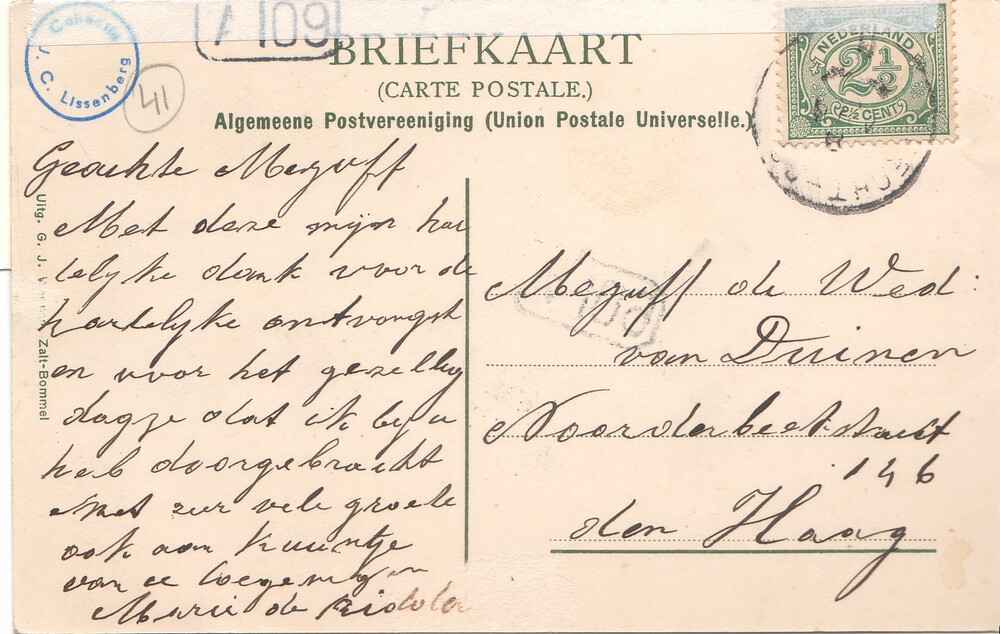 Collectie
J. C. Lissenberg
41
A 109
BRIEFKAART
(CARTE POSTALE.)
Algemeene Postvereeniging (Union Postale Universelle.)
NEDERLAND
2½
2½ CENT
Uitg. G. J. Zalt-Bommel
Geachte Mejuff
Met deze mijn har
telyke dank voor de
hartelyke ontvangst
en voor het gezellig
dagje dat ik by u
heb doorgebracht
Met zeer vele groete
ook aan
van ee
Marie de
Mejuff de Wed:
van Duinen
Noorderbeekstraat
146
den Haag